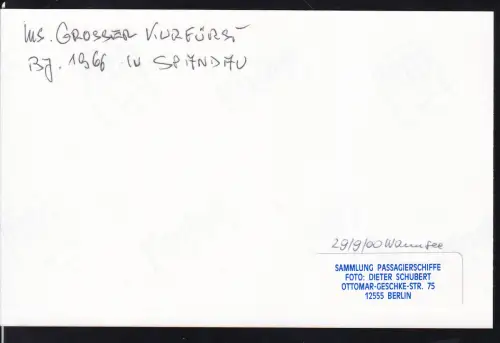 MS. GROSSER KURFÜRST
BJ. 1966 IN SPANDAU
29/9/00 Wannsee
SAMMLUNG PASSAGIERSCHIFFE
FOTO: DIETER SCHUBERT
OTTOMAR-GESCHKE-STR. 75
12555 BERLIN